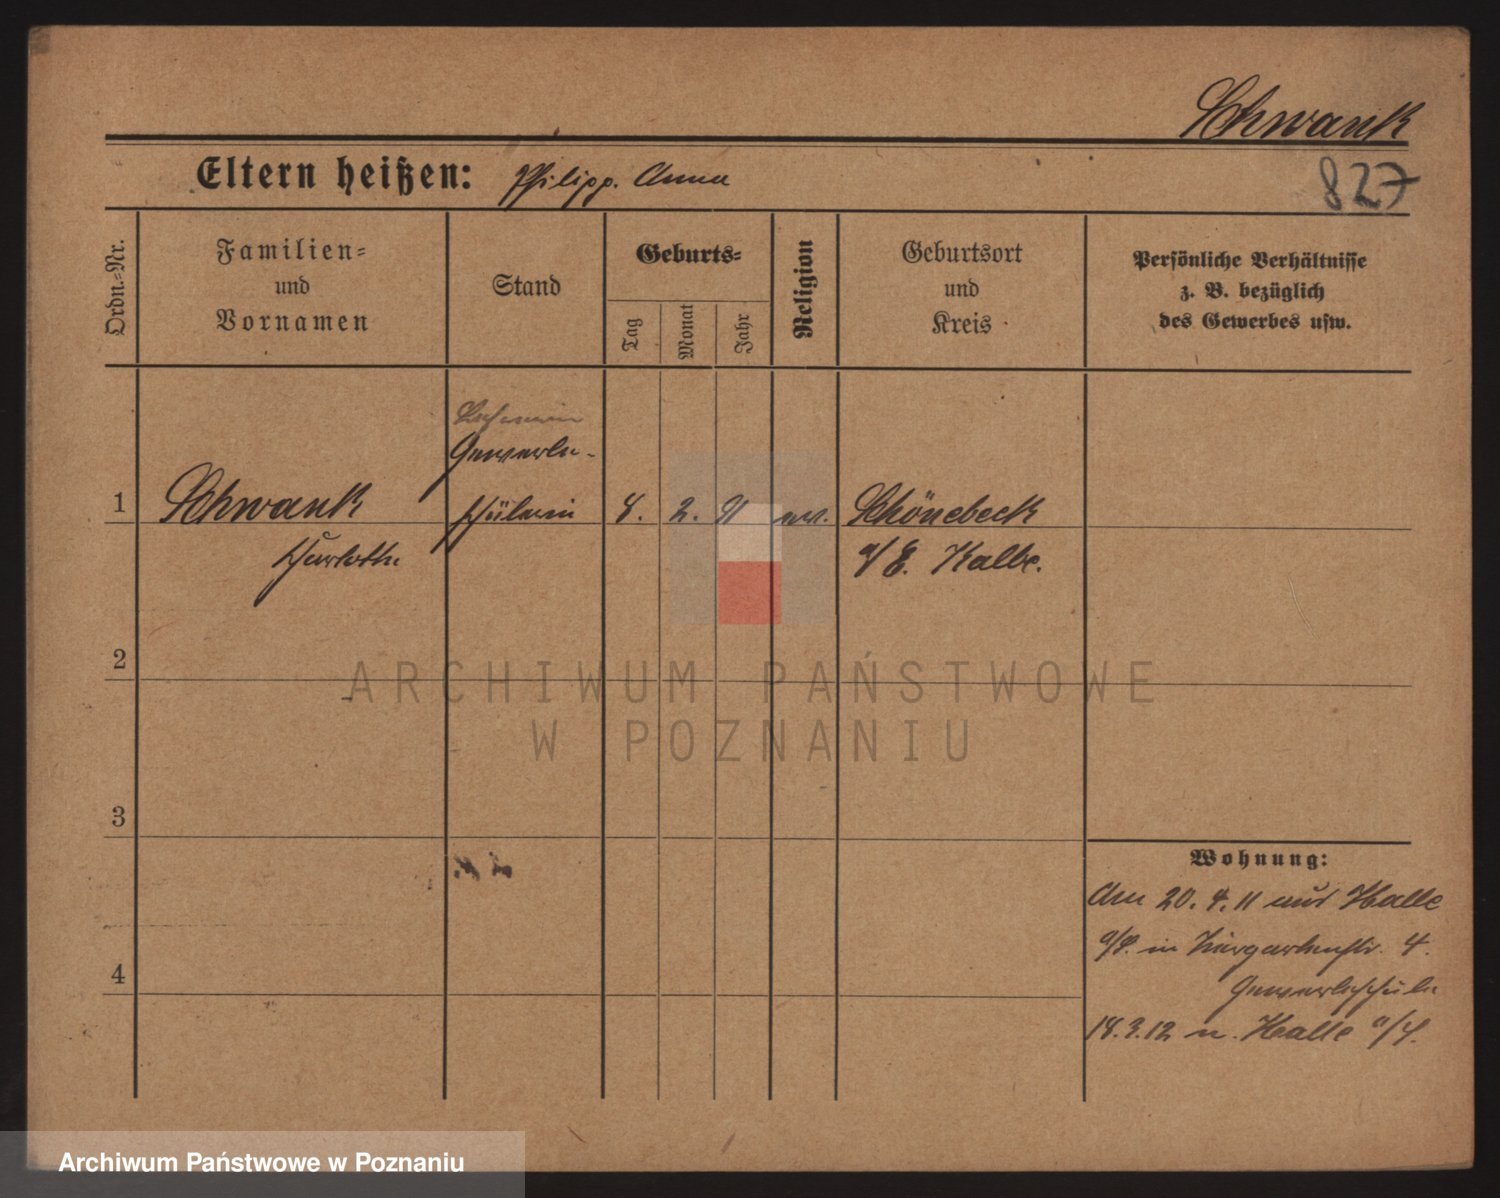 Schwank
Eltern heißen: Philipp. Anna
827
Ordn.-Nr.
Familien-
und
Vornamen
Stand
Geburts-
Tag
Monat
Jahr
Religion
Geburtsort
und
Kreis
Persönliche Verhältnisse
z. B. bezüglich
des Gewerbes usw.
Gewerbe-
1 Schwank schülerin 8. 2. 91 ev. Schönebeck
a/E. Kalbe.
2
3
4
Wohnung:
Am 20. 4. 11 aus Halle
a/S. in Tiergartenstr. 4.
Gewerbeschule
18.3.12 n. Halle a/S.
ARCHIWUM PAŃSTWOWE
W POZNANIU
Archiwum Państwowe w Poznaniu